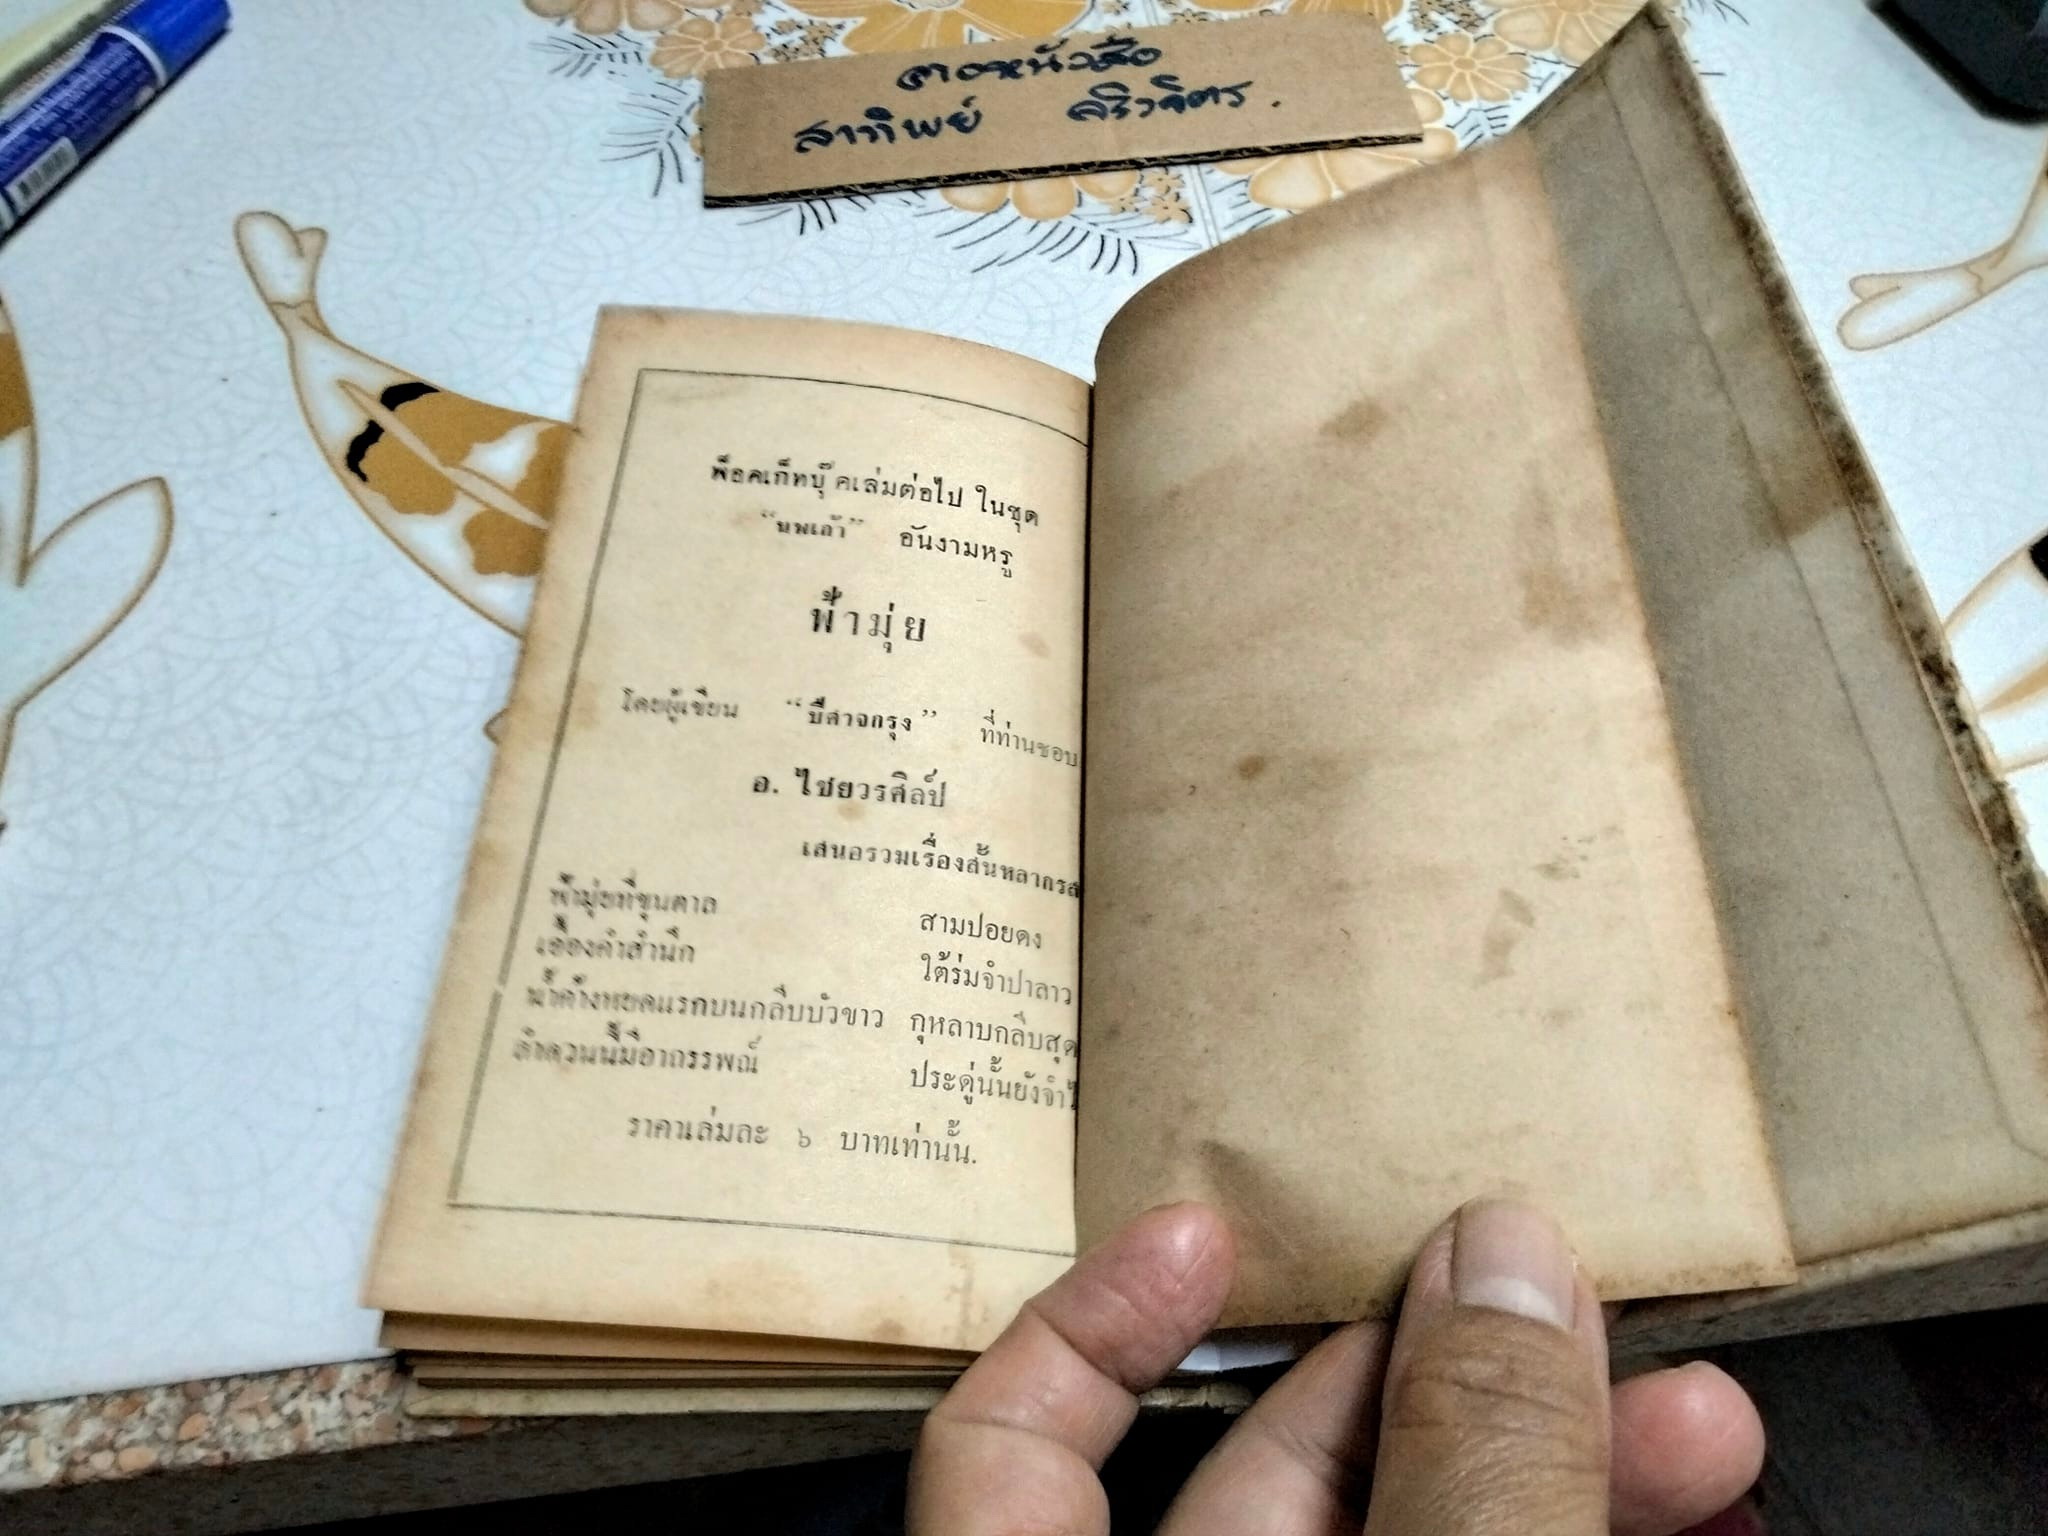 สาทิพย์
พ็อคเก็ทบุ๊คเล่มต่อไป ในชุด
“นพเก้า” อันงามหรู
ฟ้ามุ่ย
โดยผู้เขียน “ปีศาจกรุง” ที่ท่านชอบ
อ. ไชยวรศิลป์
เสนอรวมเรื่องสั้นหลากรส
ฟ้ามุ่ยที่ขุนตาล สามปอยดง
เอื้องคำสำนึก ใต้ร่มจำปาลาว
น้ำค้างหยดแรกบนกลีบบัวขาว กุหลาบกลีบสุด
ลำดวนนี้มีอาถรรพณ์ ประดู่นั้นยังจำ
ราคาเล่มละ ๖ บาทเท่านั้น.